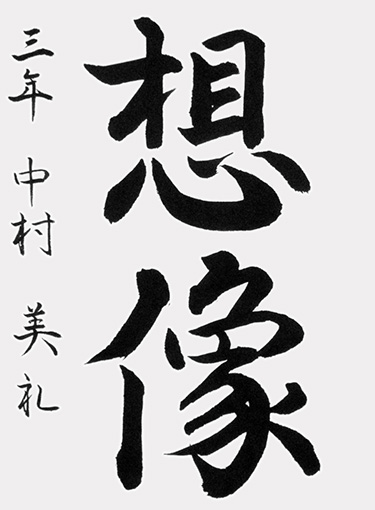 想像
三年 中村 美礼